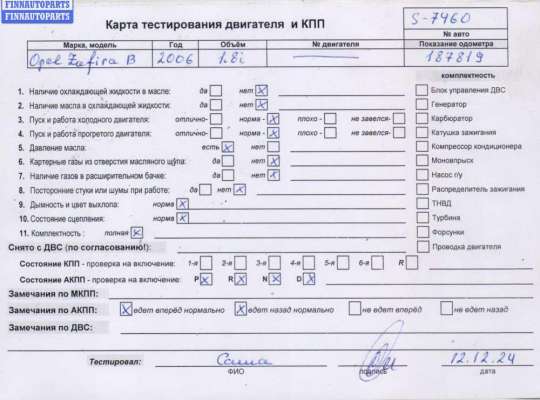 FINNAUTOPARTS
FINNAUTOPARTS
Карта тестирования двигателя и КПП
S-7460
№ авто
Марка, модель Год Объём № двигателя Показание одометра
Opel Zafira B 2006 1.8i 187819
комплектность
1. Наличие охлаждающей жидкости в масле: да нет x Блок управления ДВС
2. Наличие масла в охлаждающей жидкости: да нет x Генератор
3. Пуск и работа холодного двигателя: отлично- норма - x плохо - не завелся- Карбюратор
4. Пуск и работа прогретого двигателя: отлично- норма - x плохо - не завелся- Катушка зажигания
5. Давление масла: есть x нет Компрессор кондиционера
6. Картерные газы из отверстия масляного щупа: да нет x Моновпрыск
7. Наличие газов в расширительном бачке: да нет x Насос г/у
8. Посторонние стуки или шумы при работе: да нет x Распределитель зажигания
9. Дымность и цвет выхлопа: норма x ТНВД
10. Состояние сцепления: норма x Турбина
11. Комплектность : полная x Форсунки
Снято с ДВС (по согласованию!): Проводка двигателя
Состояние КПП - проверка на включение: 1-я 2-я 3-я 4-я 5-я 6-я R
Состояние АКПП - проверка на включение: P x R x N x D x
Замечания по МКПП:
Замечания по АКПП: x едет вперёд нормально x едет назад нормально не едет вперёд не едет назад
Замечания по ДВС:
Тестировал: Саша 12.12.24
ФИО подпись дата